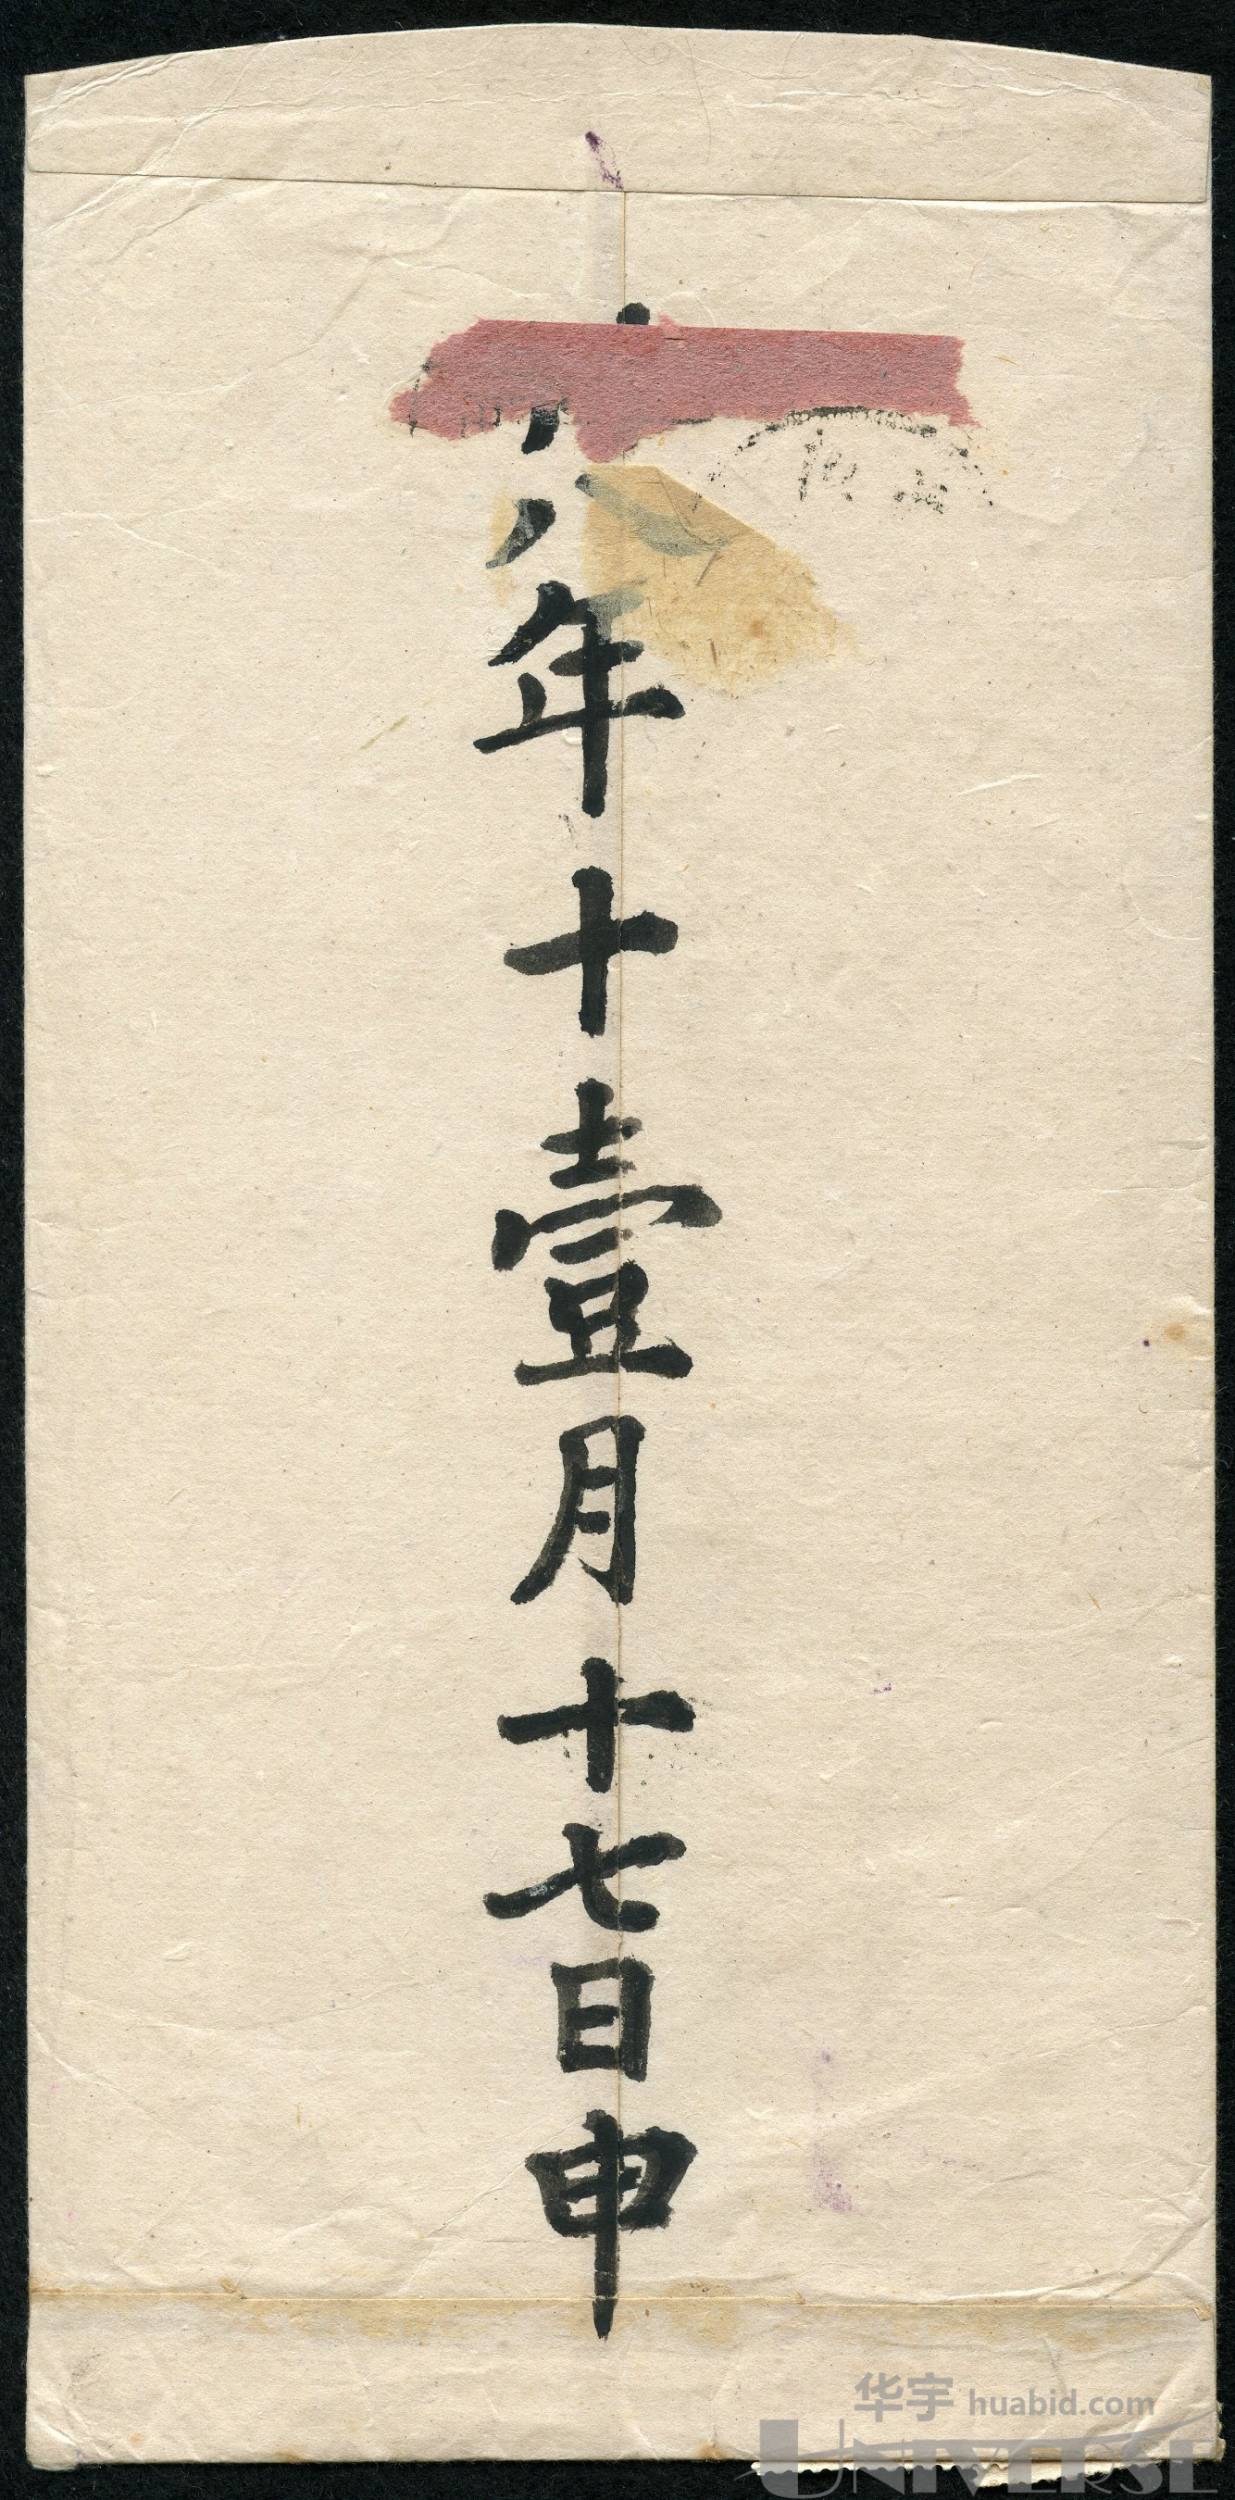 八年十壹月十七日申
华宇 huabid.com
UNIVERSE